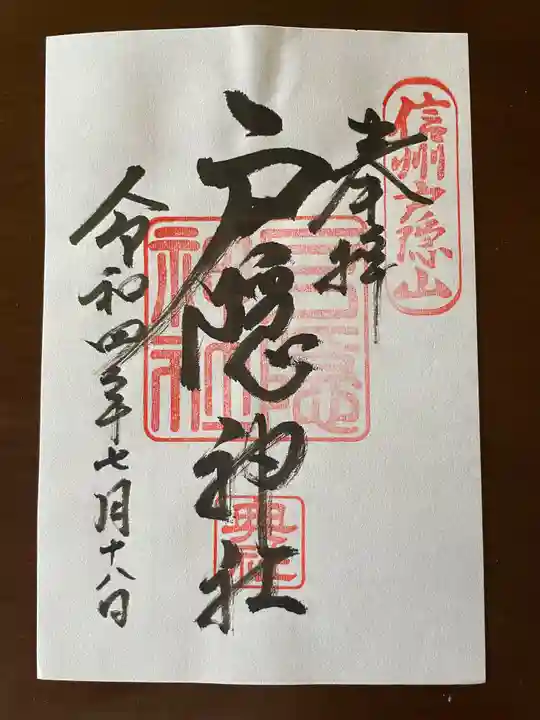 信州戸隠山
奉拝
戸隠神社
戸隠
神社
奥社
令和四年七月十八日